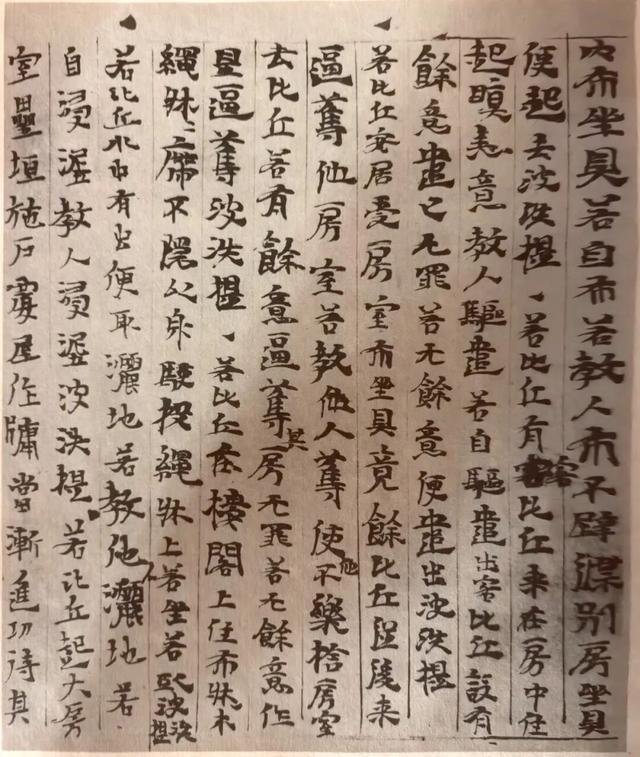 内布坐具若自布若教人布不别房坐具
便起去波泆提、若比丘有客比丘来在一房中住
起瞋恚意教人驅遣若自驅遣出客比丘設有
餘意遣已无罪若无餘意便遣出波泆提
若比丘安居受房室布坐具竟餘比丘後来
逼奪他房室若教他人奪使他不樂捨房室
去比丘若有餘意逼奪其房无罪若无餘意作
是逼奪波泆提、若比丘在樓閣上住布牀木
繩牀、席不隱以身投繩牀上若坐若卧波泆提
若比丘水中有虫便取灑地若教他人灑地若
自浸泥教人浸泥波泆提若比丘起大房
室壘垣施戶覆屋作牖當漸進功待其